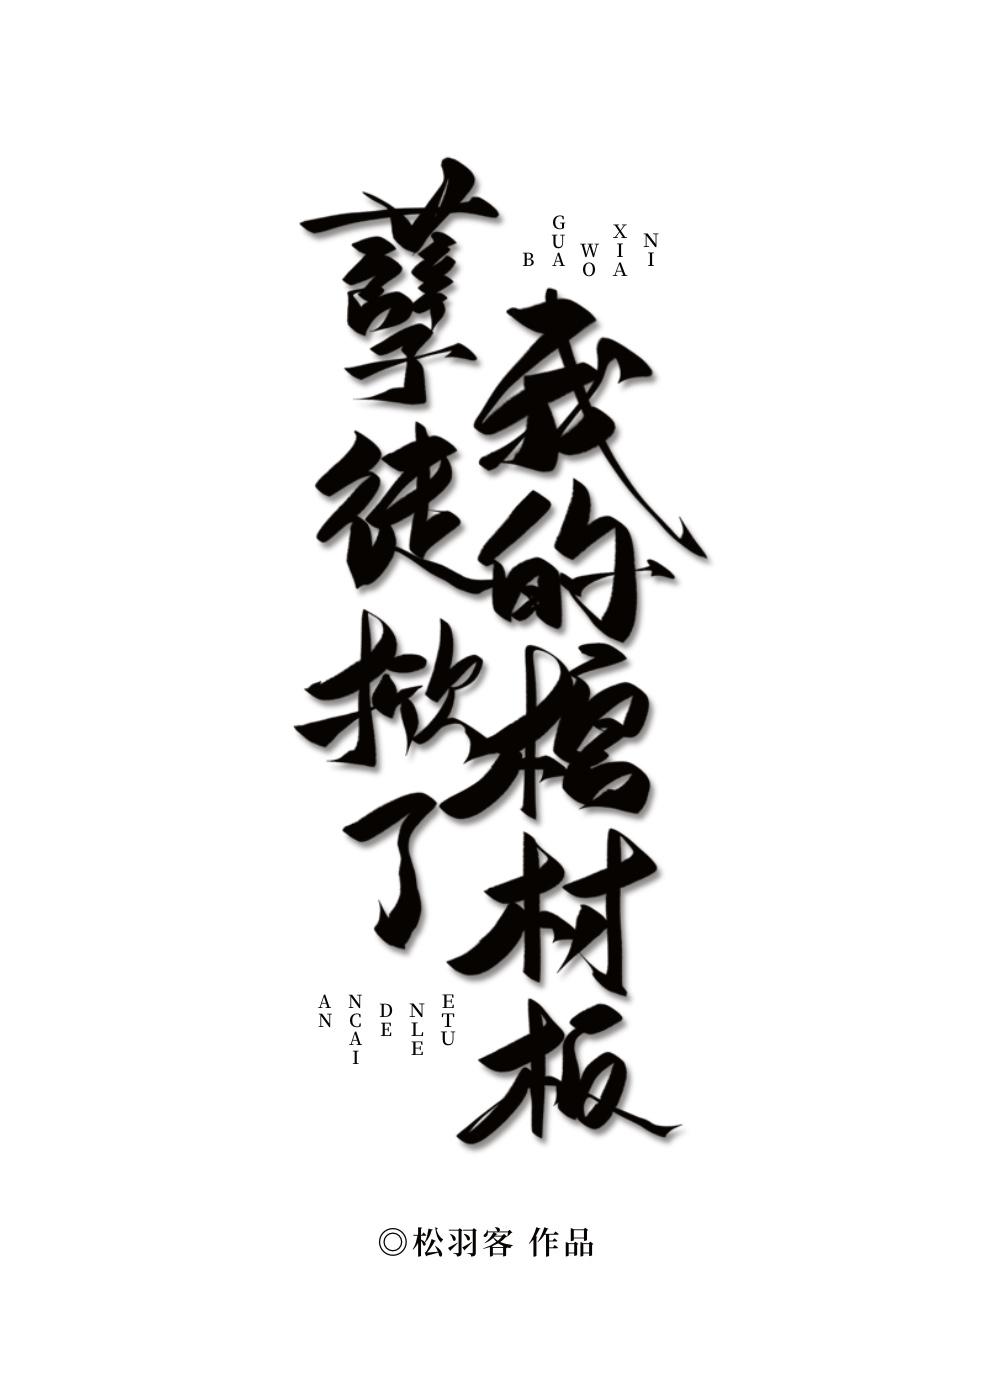 孽徒掀了
我的棺材板
B GUA WO XIA NI
AN NCAI DE NLE ETU
◎松羽客 作品